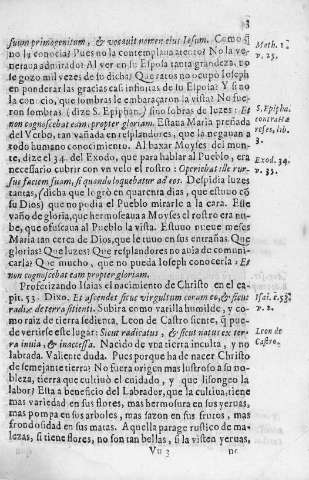 3
suum primogenitum, & vocauit nomen eius Iesum. Como q̃
no la conocia? Pues no la contemplaua atento? No la ve-
neraua admirado? Al ver en su Esposa tanta grandeza, no
se gozo mil vezes de su dicha? Que ratos no ocupò Ioseph
en ponderar las gracias casi infinitas de su Esposa? Y sino
la conocio, que sombras le embaraçaron la vista? No fue-
ron sombras (dize S. Epiphan.) sino sobras de luzes: Et
non cognoscebat eam, propter gloriam. Estaua Maria preñada
del Verbo, tan vañada en resplandores, que la negauan a
todo humano conocimiento. Al baxar Moyses del mon-
te, dize el 34. del Exodo, que para hablar al Pueblo, era
necessario cubrir con vn velo el rostro: Operiebat ille rur-
sus faciem suam, si quando loquebatur ad eos. Despidia luzes
tantas, (dicha que logrò en quarenta dias, que estuuo cõ
su Dios) que no podia el Pueblo mirarle a la cara. Este
vaño de gloria, que hermoseaua a Moyses el rostro era nu-
be, que ofuscaua al Pueblo la vista. Estuuo nueue meses
Maria tan cerca de Dios, que le tuuo en sus entrañas? Que
glorias? Que luzes? Que resplandores no auia de comuni-
carla? Que mucho, que no pueda Ioseph conocerla: Et
non cognoscebat eam propter gloriam.
Profetizando Isaias el nacimiento de Christo en el ca-
pit. 53. Dixo. Et ascendet sicut virgultum coram eo, & sicut
radix de terra sitienti. Subira como varilla humilde, y co-
mo raiz de tierra sedienta, Leon de Castro siente, q̃ pue-
de vertirse este lugar: Sicut radicatus, & sicut natus ex ter-
ra inuia, & inaccessa. Nacido de vna tierra inculta, y no
labrada. Valiente duda. Pues porque ha de nacer Christo
de semejante tierra? No fuera origen mas lustroso a su no-
bleza, tierra que cultiuò el cuidado, y que lisongeo la
labor? Esta a beneficio del Labrador, que la cultiua, tiene
mas variedad en sus flores, mas hermosura en sus yeruas,
mas pompa en sus arboles, mas sazon en sus frutos, mas
frondosidad en sus matas. Aquella parage rustico de ma-
lezas, si tiene flores, no son tan bellas, si la visten yeruas,
Vu 3 no
Math. 1.
v. 25.
S. Epipha.
contra hæ
reses, lib.
3.
Exod. 34.
v. 35.
Isai. c. 53.
v. 2.
Leon de
Castro.